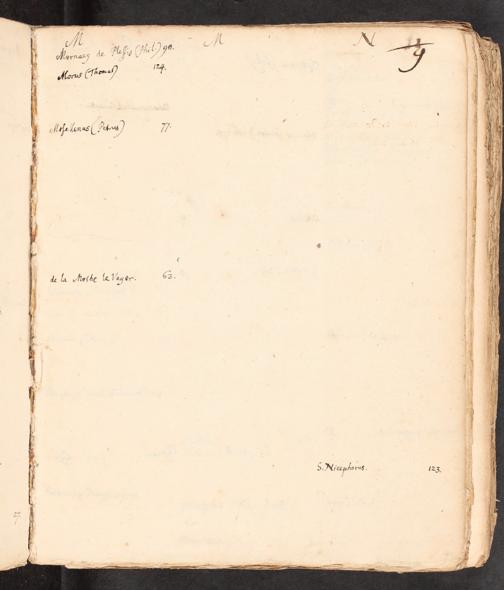 M M N 9
Mornay de Plessis (Phil.) 90.
Morus (Thomas) 124.
Mosellanus (Petrus) 77.
de la Mothe le Vayer. 63.
S. Nicephorus. 123.